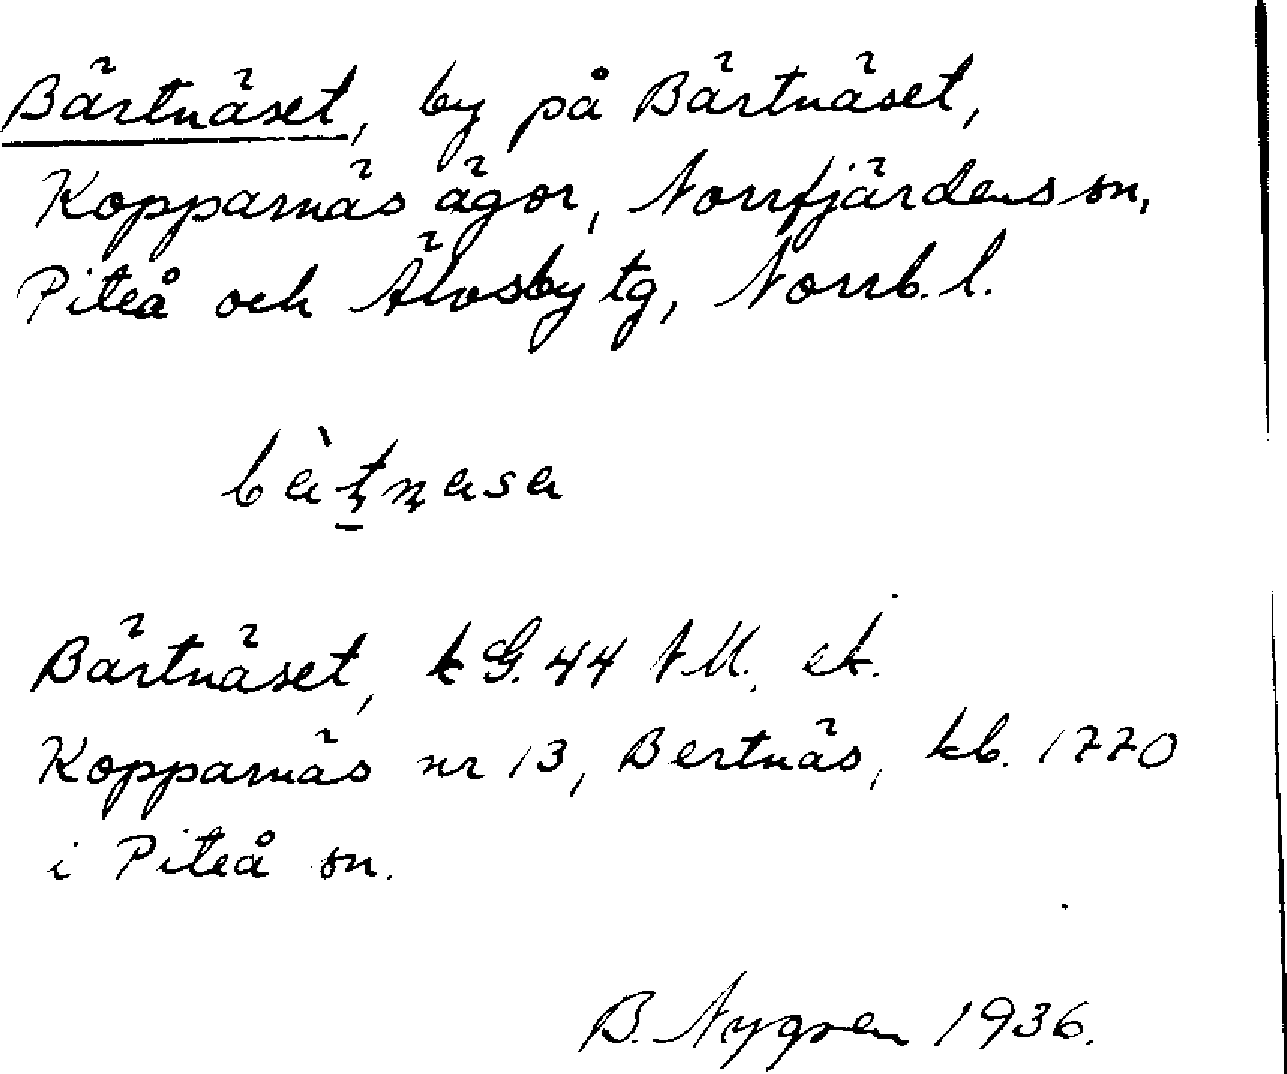 Bärtnäset, by på Bärtnäset,
Kopparnäs ägor, Norrfjärdens sn,
Piteå och Älvsby tg, Norrb. l.
Bärtnäset, k G. 44 NM. ek.
Kopparnäs nr 13, Bertnäs, kb. 1770
i Piteå sn.
B. Nygren 1936.